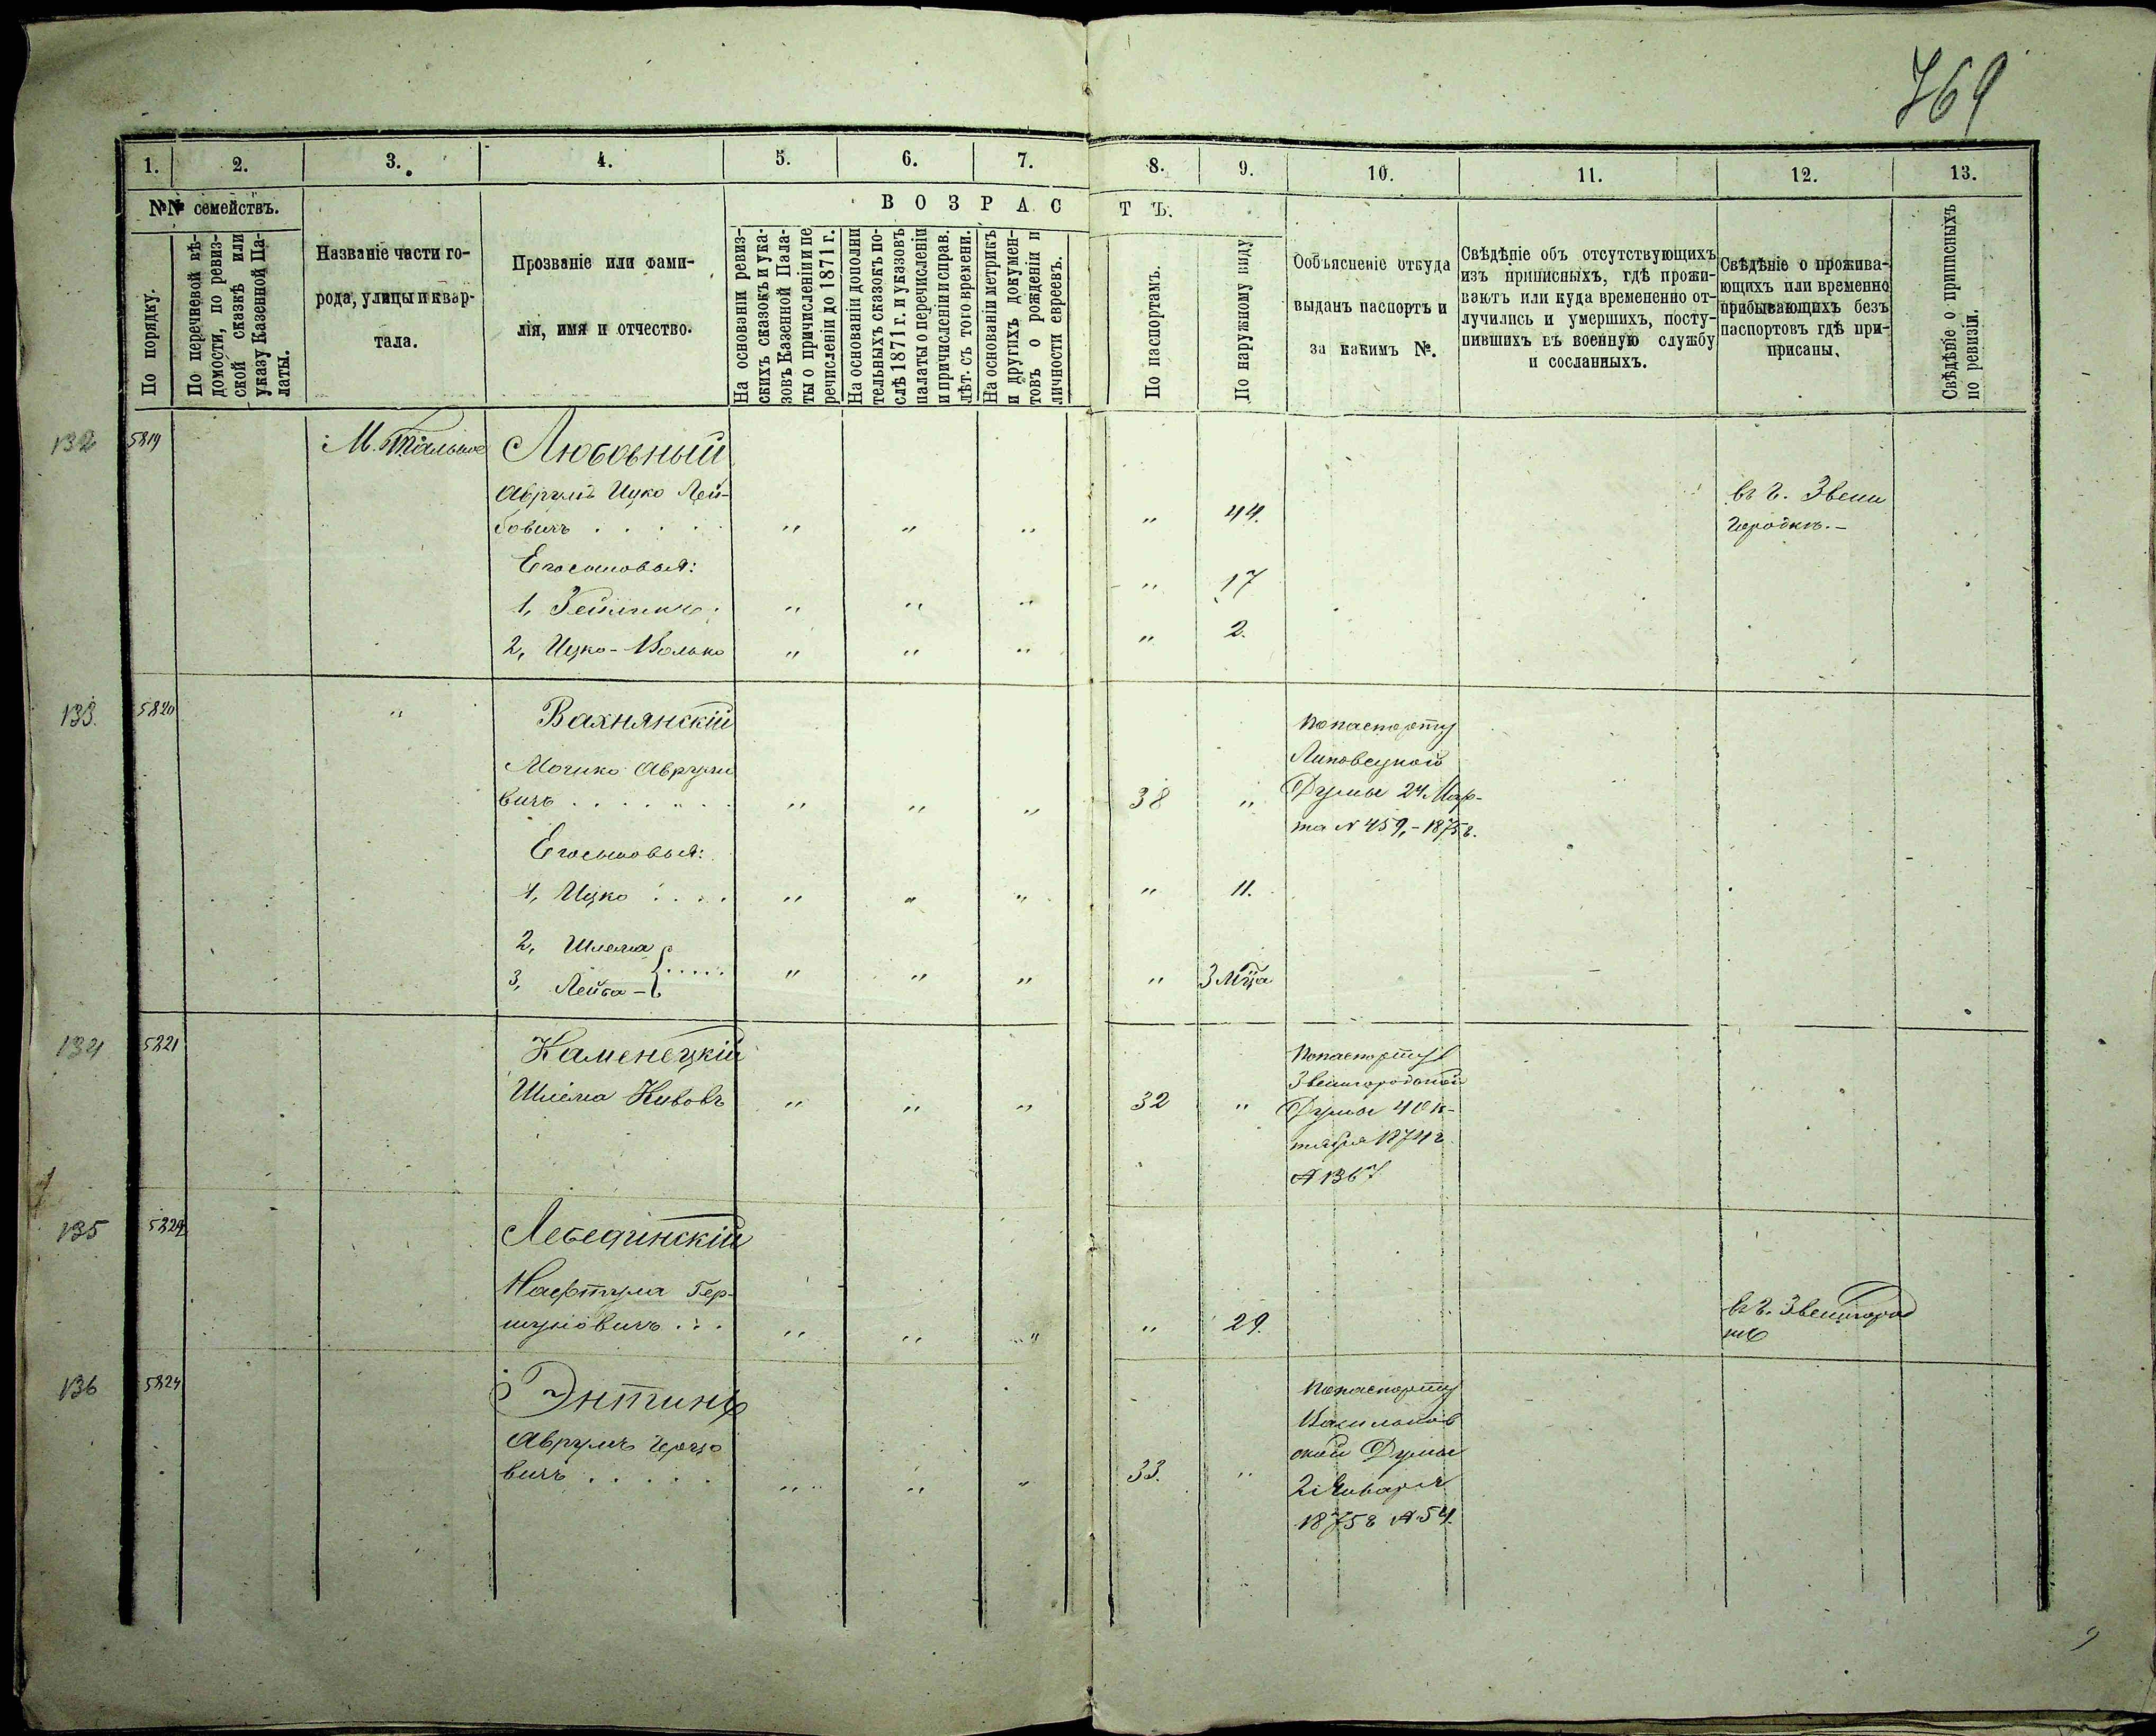 769
1. 2. 3. 4. 5. 6. 7. 8. 9. 10. 11. 12. 13.
№№ семействъ.
По порядку.
По перечневой вѣ-
домости, по ревиз-
ской сказкѣ или
указу Казенной Па-
латы.
Названіе части го-
рода, улицы и квар-
тала.
Прозваніе или фами-
лія, имя и отчество.
ВОЗРАСТЪ.
На основаніи ревиз-
скихъ сказокъ и ука-
зовъ Казенной Пала-
ты о причисленіи и пе
речисленіи до 1871 г.
На основаніи дополни
тельныхъ сказокъ по-
слѣ 1871 г. и указовъ
палаты о перечисленіи
и причисленіи и справ.
лѣт. съ того времени.
На основаніи метрикъ
и другихъ докумен-
товъ о рожденіи и
личности евреевъ.
По паспортамъ.
По наружному виду
Ообъясненіе откуда
выданъ паспортъ и
за какимъ №.
Свѣдѣніе объ отсутствующихъ
изъ приписныхъ, гдѣ прожи-
ваютъ или куда времененно от-
лучились и умершихъ, посту-
пившихъ въ военную службу
и сосланныхъ.
Свѣдѣніе о прожива-
ющихъ или временно
прибывающихъ безъ
паспортовъ гдѣ при-
присаны.
Свѣдѣніе о приписныхъ
по ревизіи.
132 5819 М. Тальное Любовный
Аврумъ Ицко Лей-
бовичъ . . . . . " " " " 44. въ г. Звени
городкѣ.-
Его сыновья:
1, Зейликъ . " " " " 17
2, Ицко-Волько " " " " 2.
133. 5820 " Вахнянскій
Мошко Аврумо
вичъ . . . . . . . " " " 38 "
По паспорту
Липовецкой
Думы 24 Мар-
та N 459,-1875 г.
Его сыновья:
1, Ицко . . . . " " " " 11.
2, Шлема
3, Лейба - . . . . . " " " " 3 Мца
134 5821 Каменецкій
Шлема Кивовъ " " " 32 "
По паспорту
Звенигородской
Думы 4 Ок-
тября 1874 г
№ 1367
135 5822 Лебединскій
Нафтула Гер-
шуновичъ . . . " " " " 29. въ г. Звенигород
кѣ
136 5824 Энтинъ
Аврумъ
вичъ . . . . . " " " 33. "
По паспорту
Васильков
ской Думы
2 Января
1875 г № 54.